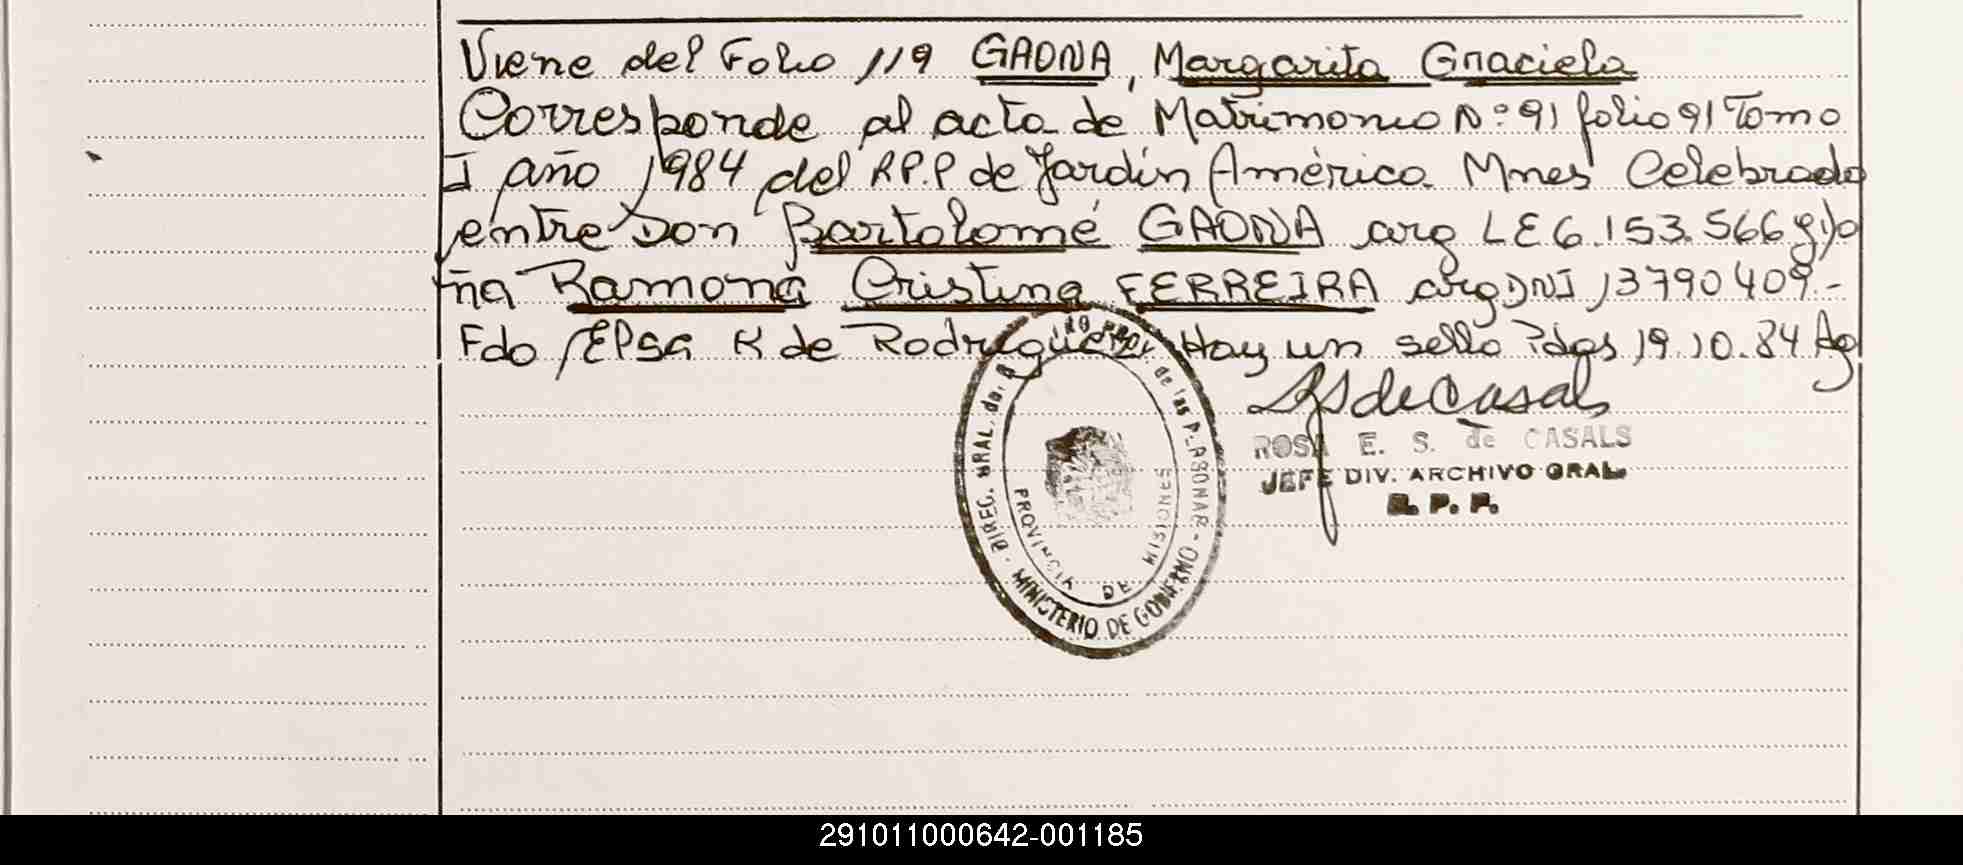 Viene del Folio 119 GAONA, Margarita Graciela
Corresponde al acta de Matrimonio Nº 91 folio 91 Tomo
I año 1984 del R.P.P de Jardín América. Mnes Celebrado
entre Don Bartolomé GAONA arg LE 6.153.566 y Do
ña Ramona Cristina FERREIRA arg DNI 13790409.-
Fdo Elsa K de Rodriguez Hay un sello Pdas 19.10.84
ROSA E. S. de CASALS
JEFE DIV. ARCHIVO GRAL.
R. P. P.
PROV. de las PERSONAS - MINISTERIO DE GOBIERNO
PROVINCIA DE MISIONES
291011000642-001185